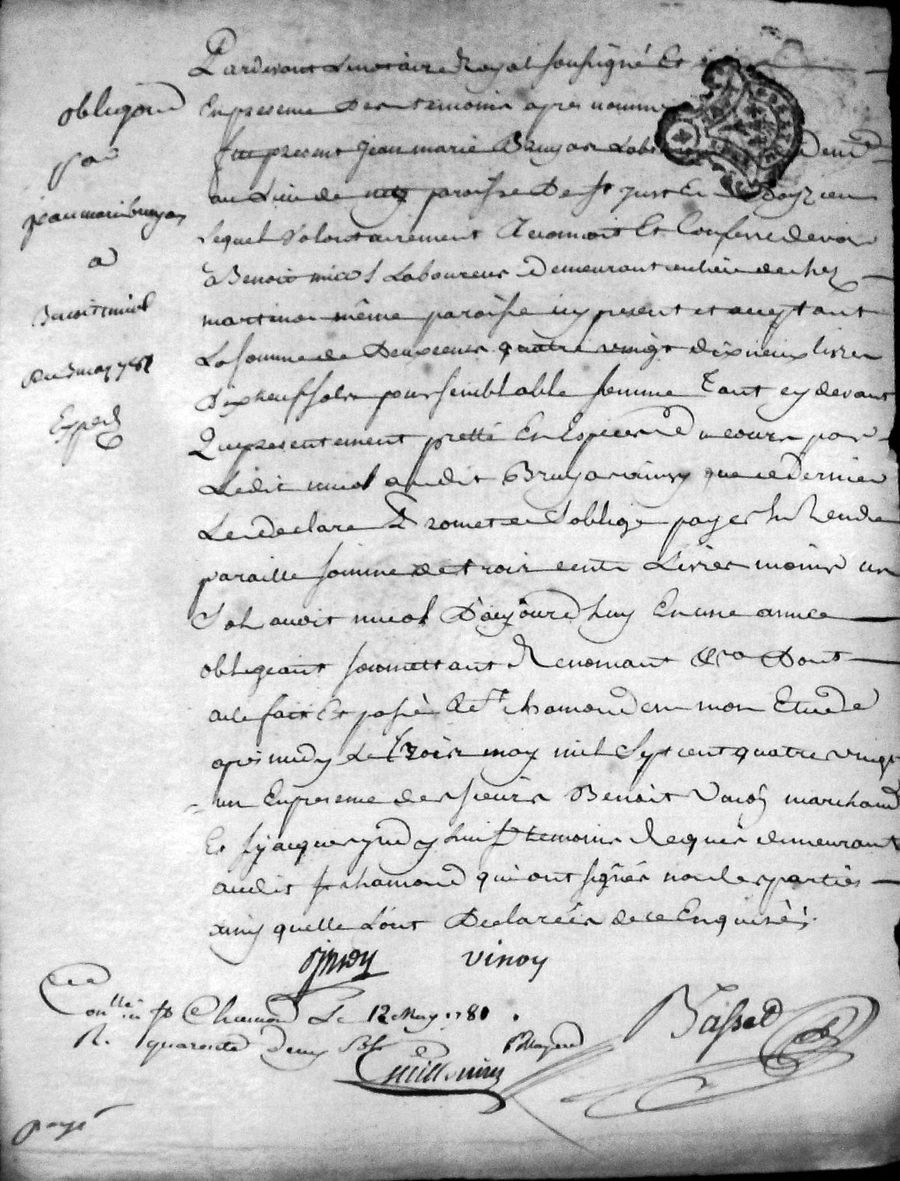 Pardevant Le notaire Royal soussigné Et
En presence Des temoins apres nommes
fut present Jean marie Bruyas Lab demt
au Lieu de paroisse De st just En Doyzieu
Lequel volontairement Reconnoit Et Confesse devoir
a Benoit miol Laboureur Demeurant au lieu de chez
martinon même paroisse icy present et acceptant
La somme de Deux cens quatre vingt dix neuf livres
Dix neuf sols pour semblable somme Tant cy devant
Que presentement pretté En Especes d cours par
Ledit miol audit Bruyas ainsy que ce Dernier
Le declare Promet et s'oblige payer Et Rendre
paraille somme de trois cents Livres moins un
Sol audit miol D'aujourd'huy En une année
obligeant soumettant Renonçant &ca Dont
acte fait Et passé a St chamond en mon Etude
apres midy Le Trois may mil Sept cent quatre vingt
un En presence de sieurs Benoit marchand
Et jacques temoins Requis demeurant
audit st chamond qui ont signés non les parties
ainsy quelle L'ont Declarées de ce Enquises
obligaon
par
jean marie bruyas
a
Benoit miol
Du 3 may 1781
Exped
vinoy
Con.llé in St Chamond Le 12 May 1781.
R. quarente Deux Sols
Guillemin
Basset
payé